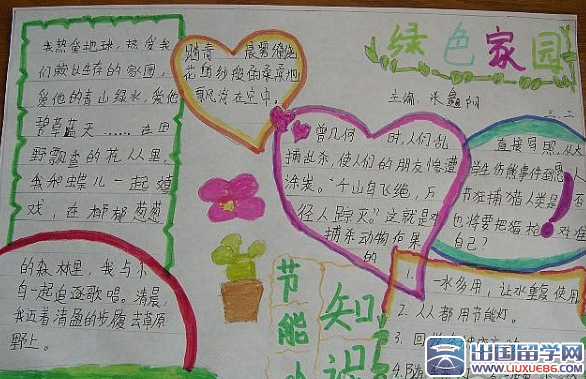 我热爱地球,热爱我
们赖以生存的家园,
爱他的青山绿水,爱他
碧草蓝天……在田
野飘香的花丛里,
我和蝶儿一起嬉
戏,在郁郁葱葱
的森林里,我与小
鸟一起追逐歌唱。清晨,
我迈着清盈的步履去草原
野上。
踏青 晨雾缩绕
花的纱瘦
飘荡在空中。
绿色家园
主编:朱
三.二
曾几何 时,人们乱
捕乱杀,使人们的朋友惨遭
涂炭。“千山鸟飞绝,万
径人踪灭。”这就是
捕杀动物后果
的
直接写照,从大
学生伤熊事件到
节狂捕猫人类是
也将要把猎枪 对准
自己?
节能小
知识
1. 一水多用,让水重复使用
2. 人人都用节能灯。
3. 回
4.
出国留学网
www.liuxue86.com